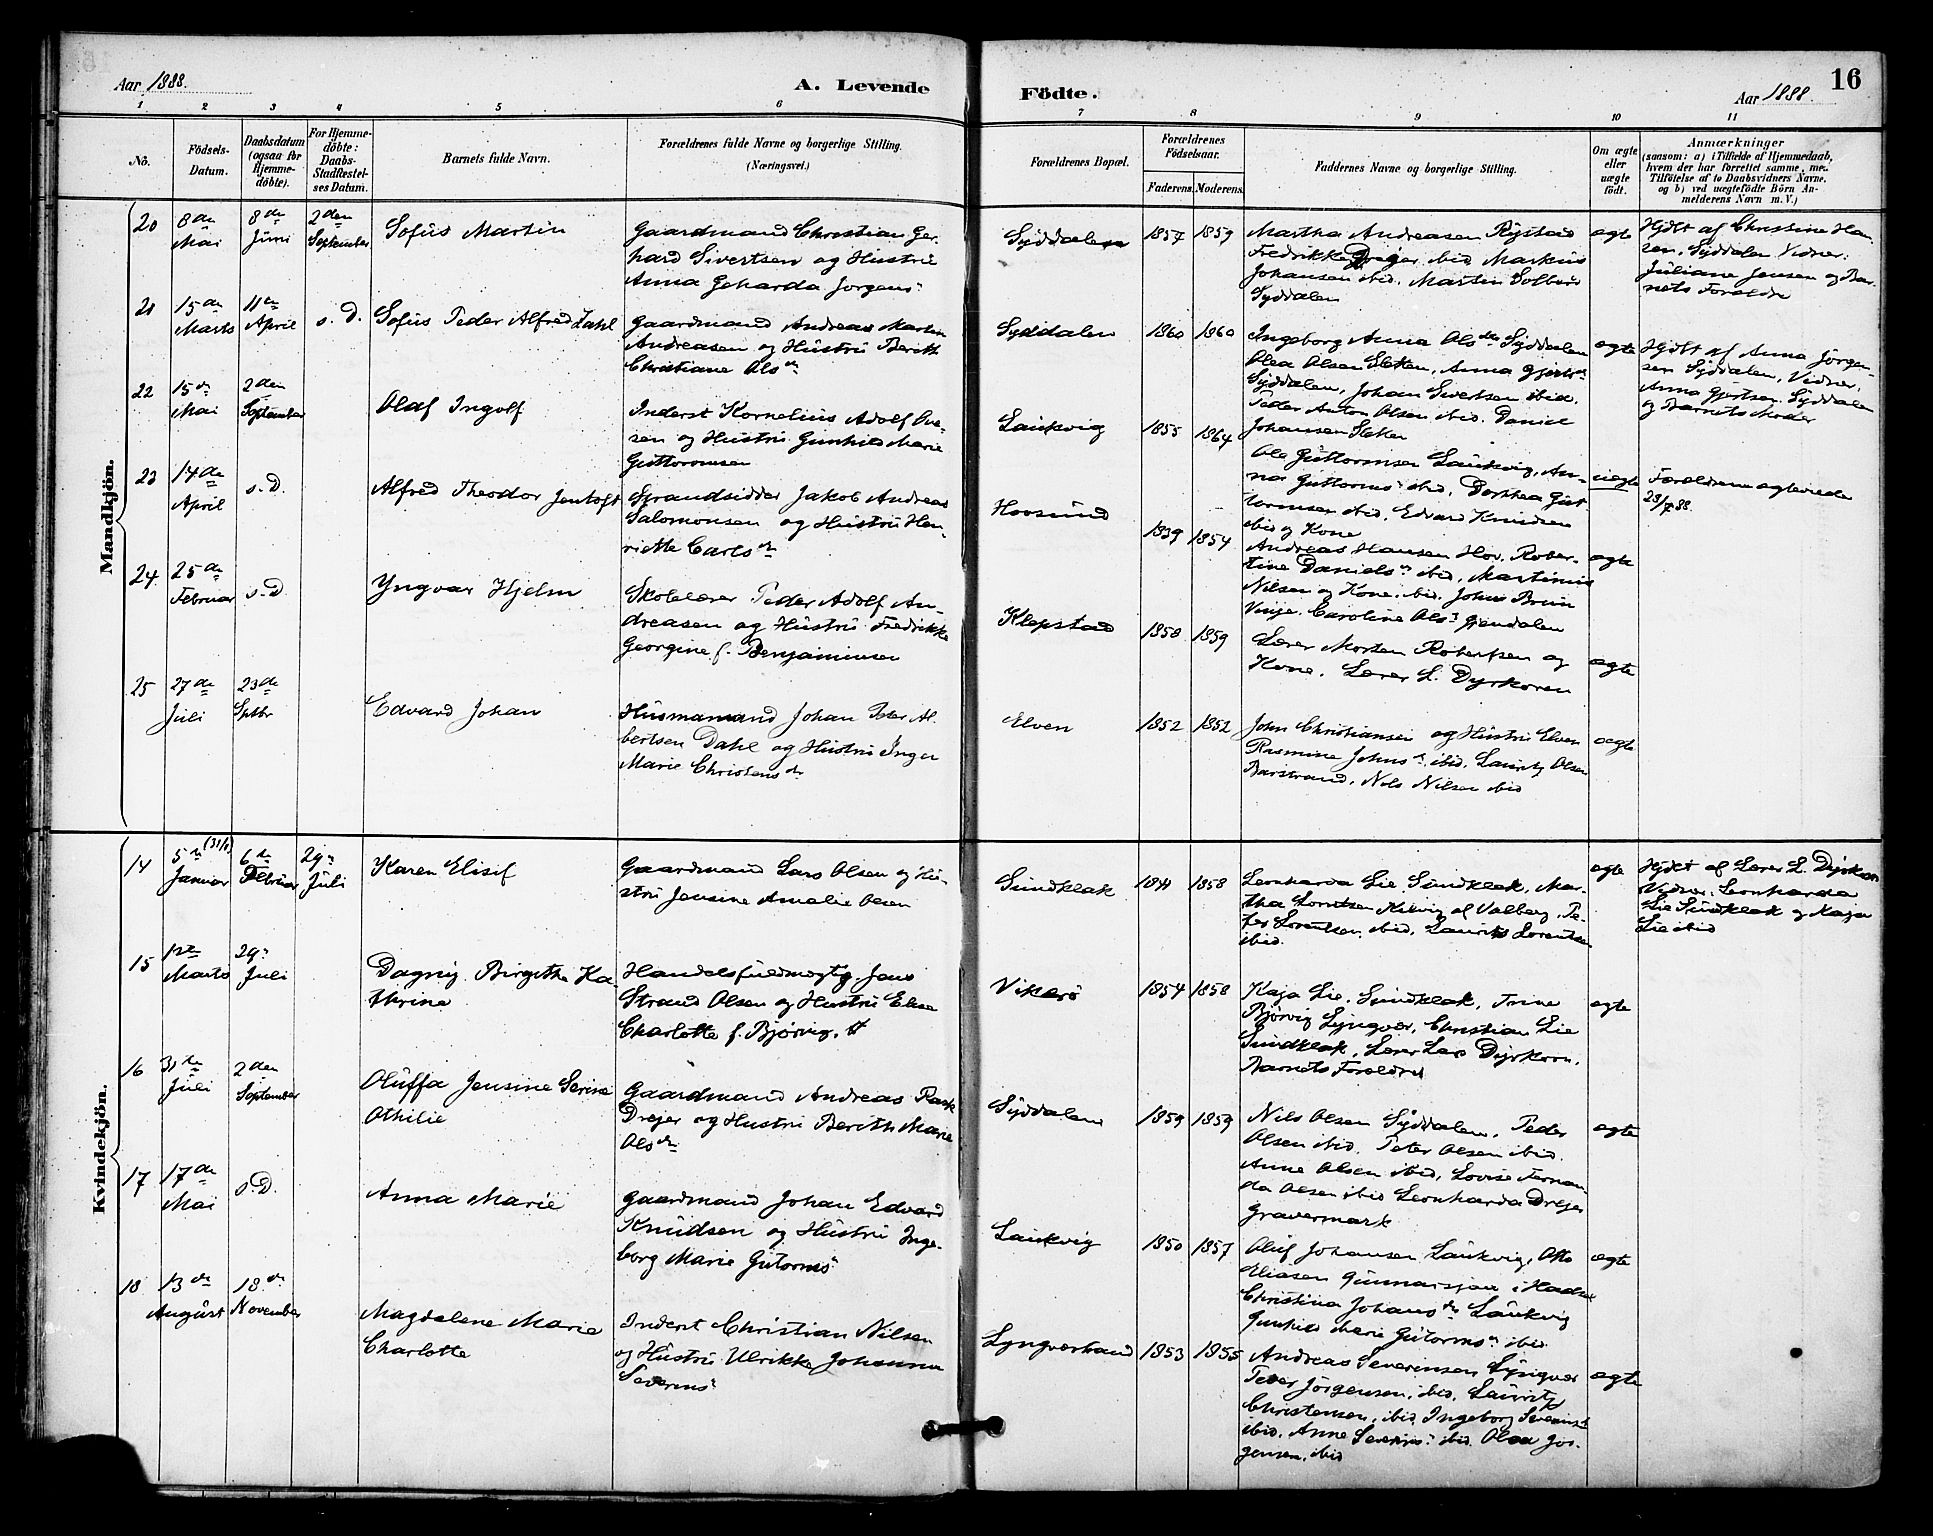 Aar 1888.
A. Levende
Födte.
Aar 1888.
16
1 2 3 4 5 6 7 8 9 10 11
No.
Födsels-
Datum.
Daabsdatum
(ogsaa for
Hjemme-
döbte).
For Hjemme-
döbte:
Daabs-
Stadfæstel-
ses Datum.
Barnets fulde Navn.
Forældrenes fulde Navne og borgerlige Stilling.
(Næringsvei.)
Forældrenes Bopæl.
Forældrenes
Födselsaar.
Faderens. Moderens.
Faddernes Navne og borgerlige Stilling.
Om ægte
eller
uægte
födt.
Anmærkninger
(saasom: a) i Tilfælde af Hjemmedaab,
hvem der har forrettet samme, med
Tilföielse af to Daabsvidners Navne,
og b) ved uægtefödte Börn An-
melderens Navn m. V.)
Mandkjön.
20
8de
Mai
8de
Juni
2den
September
Sofus Martin
Gaardmand Christian Ger-
hard Sivertsen og Hustru
Anna Geharda Jorgens
Syddalen
1857 1859
Martha Andreasen Rystad
Fredrikke Dreyer ibid Markus
Johansen ibid. Martin Solberg
Syddalen
ægte
Hjdbt af Christine Han-
sen, Syddalen Vidner:
Juliane Jensen og Bar-
nets Forældre
21
15de
Marts
11te
April
s. D.
Sofus Peder Alfred Zahl
Gaardmand Andreas Martin
Andreasen og Hustru Berith
Christiane Olsdr
Syddalen
1860 1860
Ingeborg Anna Olsdr Syddalen
Olea Olsen Sletten, Anna Gjertsdr
Syddalen, Johan Sivertsen ibid.
Peder Anton Olsen ibid. Daniel
Johansen Sletten
ægte
Hjdbt af Anna Jörgen-
sen Syddalen, Vidner,
Anna Gjertsen, Syddalen
og Barnets Moder
22
15de
Mai
2den
September
Olaf Ingolf
Inderst Kornelius Adolf Ove-
sen og Hustru Gunhild Marie
Guttormsen
Laukvig
1855 1864
Ole Guttormsen Laukvig, An-
na Guttorms ibid, Dorthea Gut-
tormsen ibid. Edvard Knudsen
ibid og Kone
uægte
Forældrene ægteviede
28/7 88.
23
14de
April
s. D.
Alfred Theodor Jentoft
Strandsidder Jakob Andreas
Salomonsen og Hustru Hen-
riette Carlsdr
Hovsund
1839 1854
Andreas Hansen Hov. Rober-
tine Daniels ibid, Martinus
Nilsen og Kone ibid. Johs Bruun
Vinje. Caroline Ols Gjendalen
ægte
24
25de
Februar
s. D.
Yngvar Hjelm
Skolelærer Peder Adolf An-
dreasen og Hustru Fredrikke
Georgine f. Benjaminsen
Klepstad
1858 1859
Lærer Morten Robertsen og
Kone. Lærer L. Dyrkoren
ægte
25
27de
Juli
23de
Sptbr
Edvard Johan
Husmamand Johan Peter Al-
bertsen Dahl og Hustru Inger
Marie Christensdr
Elven
1852 1852
John Christiansen og Hustru Elven
Rasmine Johns ibid. Lauritz Olsen
Barstrand, Nils Nilsen ibid
ægte
Kvindekjön.
14
5te
Januar
6te
Februar
29
Juli
Karen Elisif
Gaardmand Lars Olsen og Hu-
stru Jensine Amalie Olsen
Sundklak
1858
Leonharda Lie Sundklak, Mar-
tha Lorntsen Kilvig af Valberg, Pe-
der Lorentsen ibid, Laurits Lorentsen
ibid.
ægte
Hjdbt af Lærer L. Dyrkorn
Vidner: Leonharda
Lie Sundklak og Kaja
Lie ibid
15
1ste
Marts
29
Juli
Dagny Birgitha Ka-
thrine
Handelsfuldmegtg. Jens
Strand Olsen og Hustru Elise
Charlotte f. Bjørvig.
Vikerö
1854 1858
Kaja Lie. Sundklak, Trine
Bjørvig Lyngvær, Christian Lie
Sundklak. Lærer Lars Dyrkorn.
Barnets Forældre
ægte
16
31te
Juli
2den
September
Oluffa Jensine Serine
Othilie
Gaardmand Andreas Rask
Drejer og Hustru Berith Marie
Olsdr
Syddalen
1859 1859
Nils Olsen Syddalen. Peder
Olsen ibid. Peter Olsen ibid.
Anne Olsen ibid, Lovise Fernan-
da Olsen ibid Leonharda Drejer
Gravermark
ægte
17
17de
Mai
s. D.
Anna Marie
Gaardmand Johan Edvard
Knudsen og Hustru Inge-
borg Marie Gutorms
Laukvig
1850 1857
Oluf Johansen Laukvig, Otto
Eliasen Gunnarsjaa i Hadsel
Christina Johansdr Laukvig
Gunhild Marie Gutorms ibid
ægte
18
13de
August
18de
November
Magdalene Marie
Charlotte
Inderst Christian Nilsen
og Hustru Ulrikke Johanna
Severins
Lyngværstrand
1853 1855
Andreas Severinsen Lyngvær
Peder Jörgensen, ibid. Lauritz
Christensen, ibid Ingeborg Severinsdr
ibid, Anne Severins ibid Olea Jör-
gensen, ibid
ægte